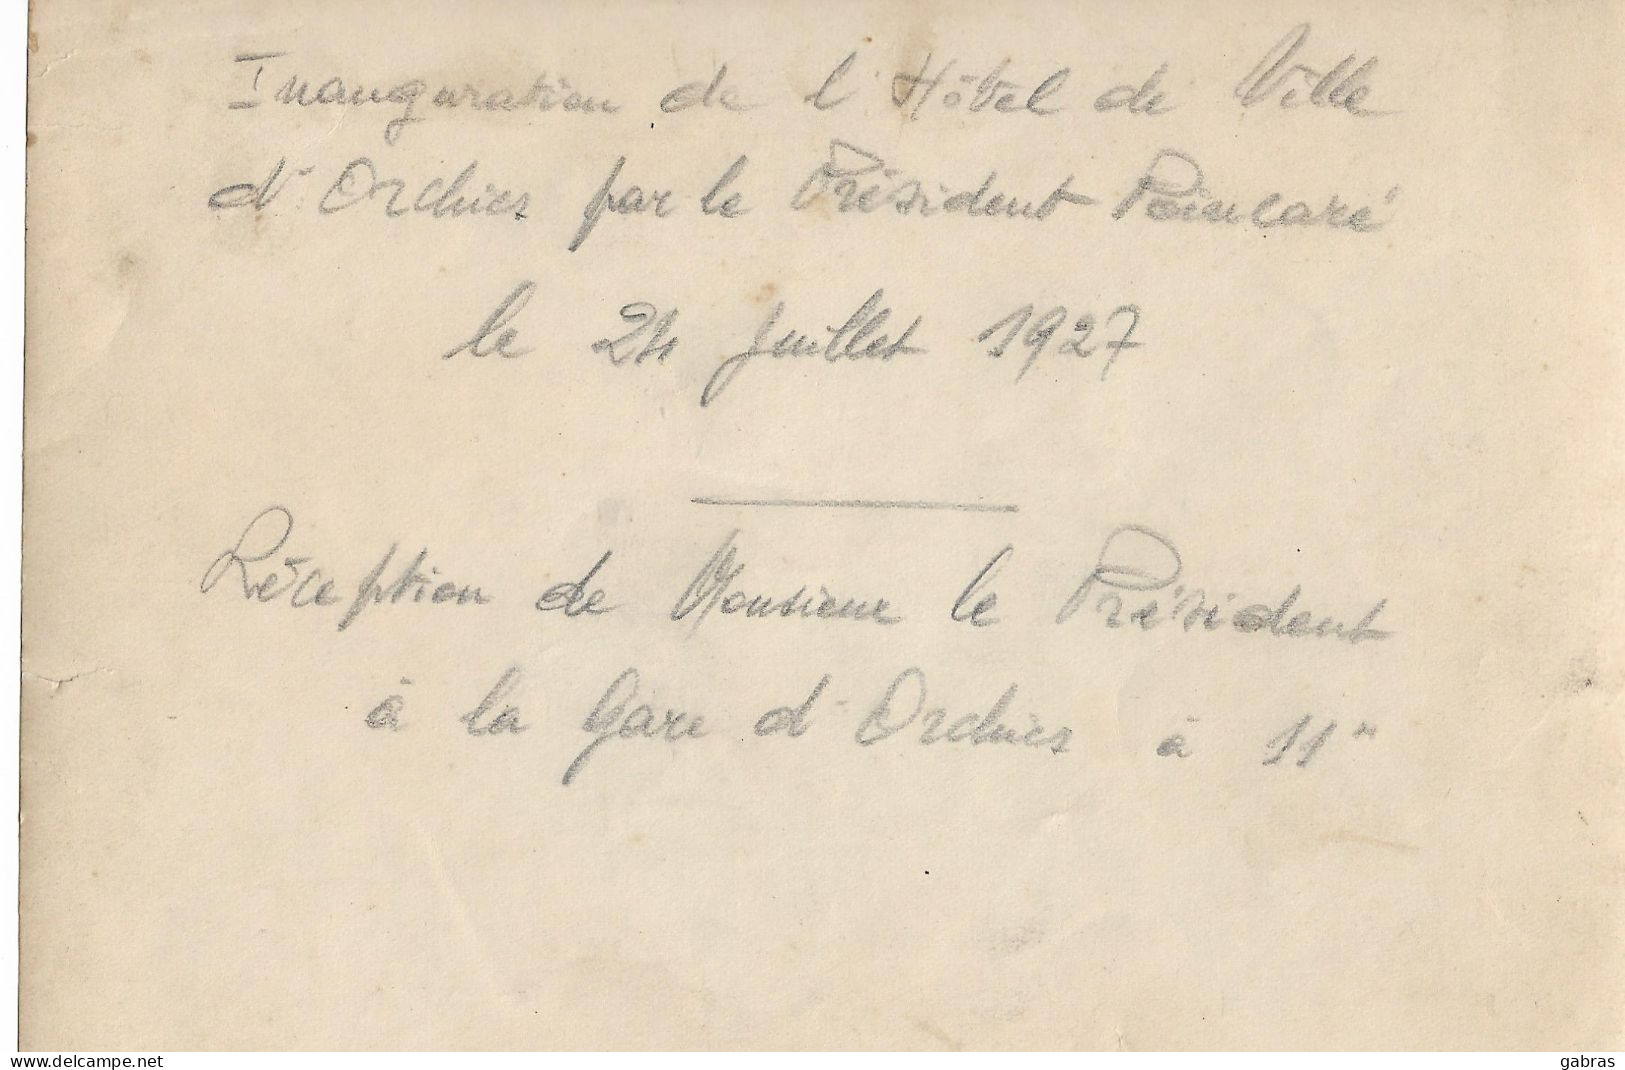 Inauguration de l'Hôtel de Ville
d'Orchies par le Président Poincaré
le 24 Juillet 1927
Réception de Monsieur le Président
à la Gare d'Orchies à 11"
www.delcampe.net
gabras